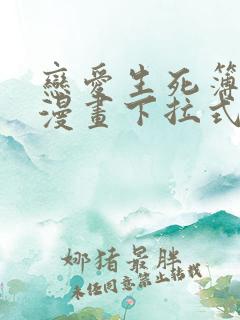 戀愛生死簿
漫畫下拉式
娜猪最胖
未经同意禁止转载